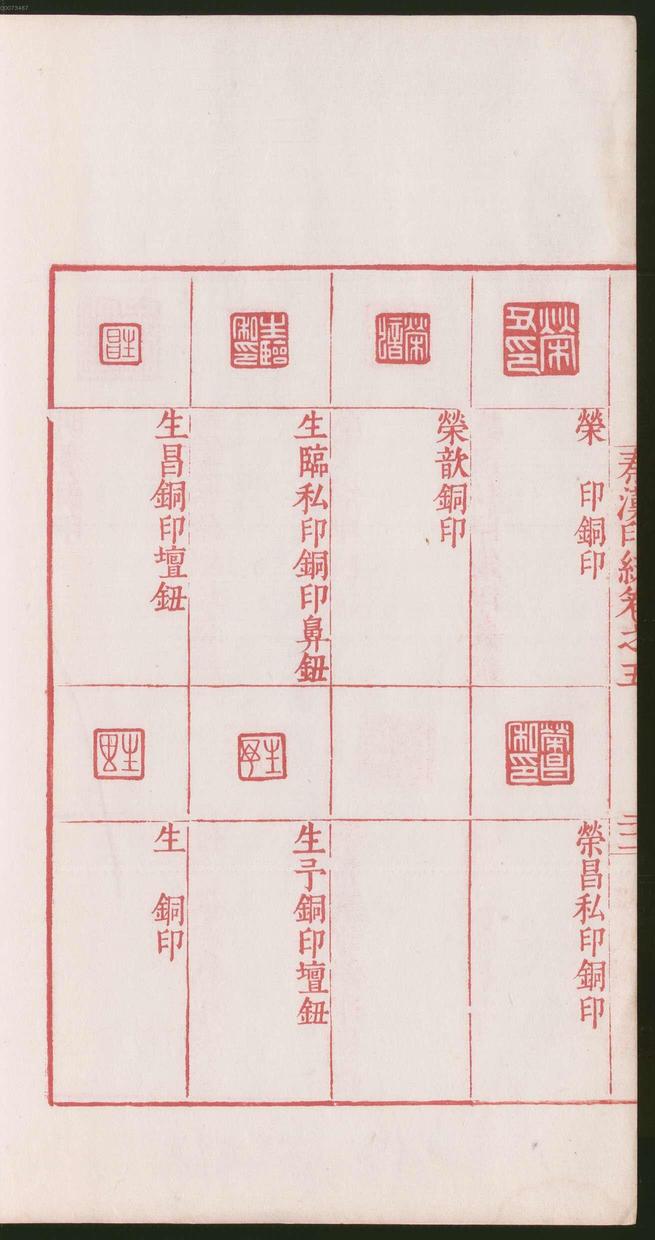 00073467
秦漢印統卷之五
三
榮　印銅印
榮歆銅印
生臨私印銅印鼻鈕
生昌銅印壇鈕
榮昌私印銅印
生予銅印壇鈕
生　銅印